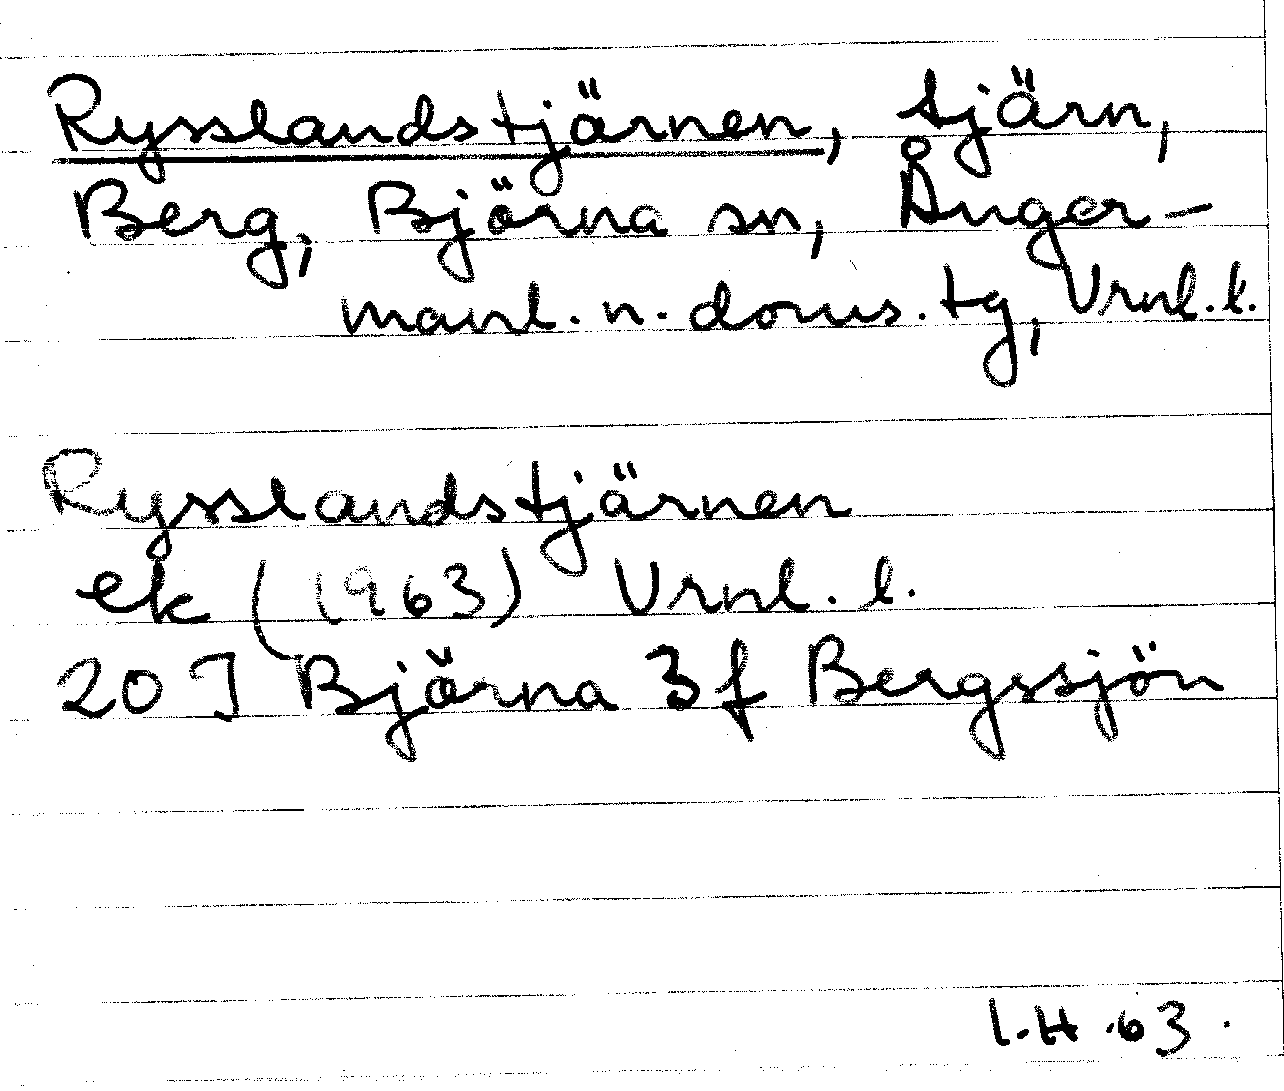 Rysslandstjärnen, tjärn,
Berg, Björna sn, Ånger-
manl. n. doms. tg, Vrnl. l.
Rysslandstjärnen
ek (1963) Vrnl. l.
20 J Björna 3 f Bergssjön
I.H.63.